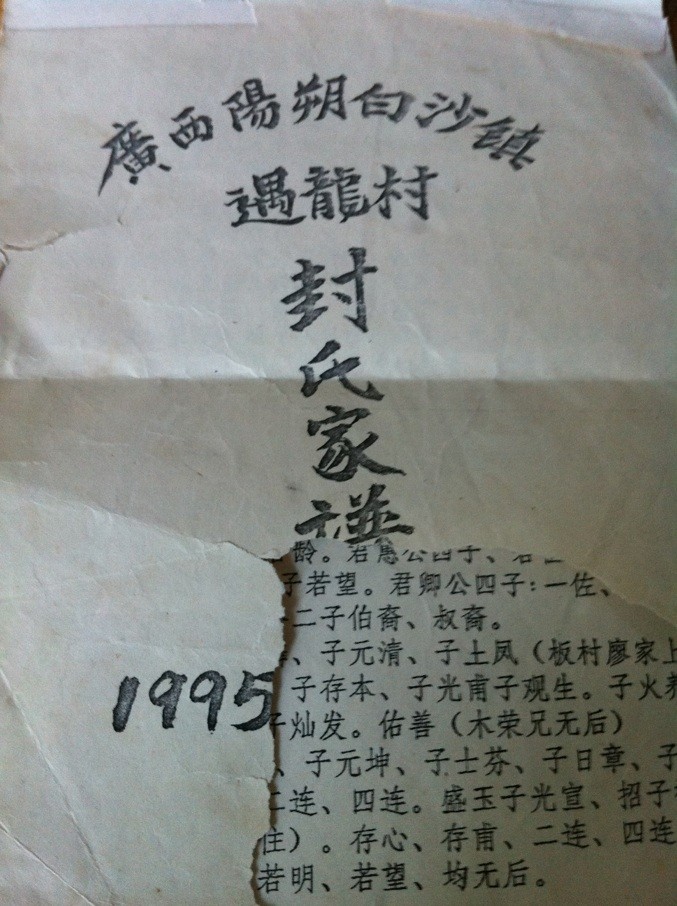 廣西陽朔白沙镇
遇龍村
封氏家譜
1995
龄。君惠公四子、君
子若望。君卿公四子：一佐、
二子伯裔、叔裔。
、子元清、子土凤（板村廖家上
子存本、子光甫子观生。子火养
子灿发。佑善（木荣兄无后）
、子元坤、子士芬、子日章、子
二连、四连。盛玉子光宣、招子
住）。存心、存甫、二连、四连
若明、若望、均无后。